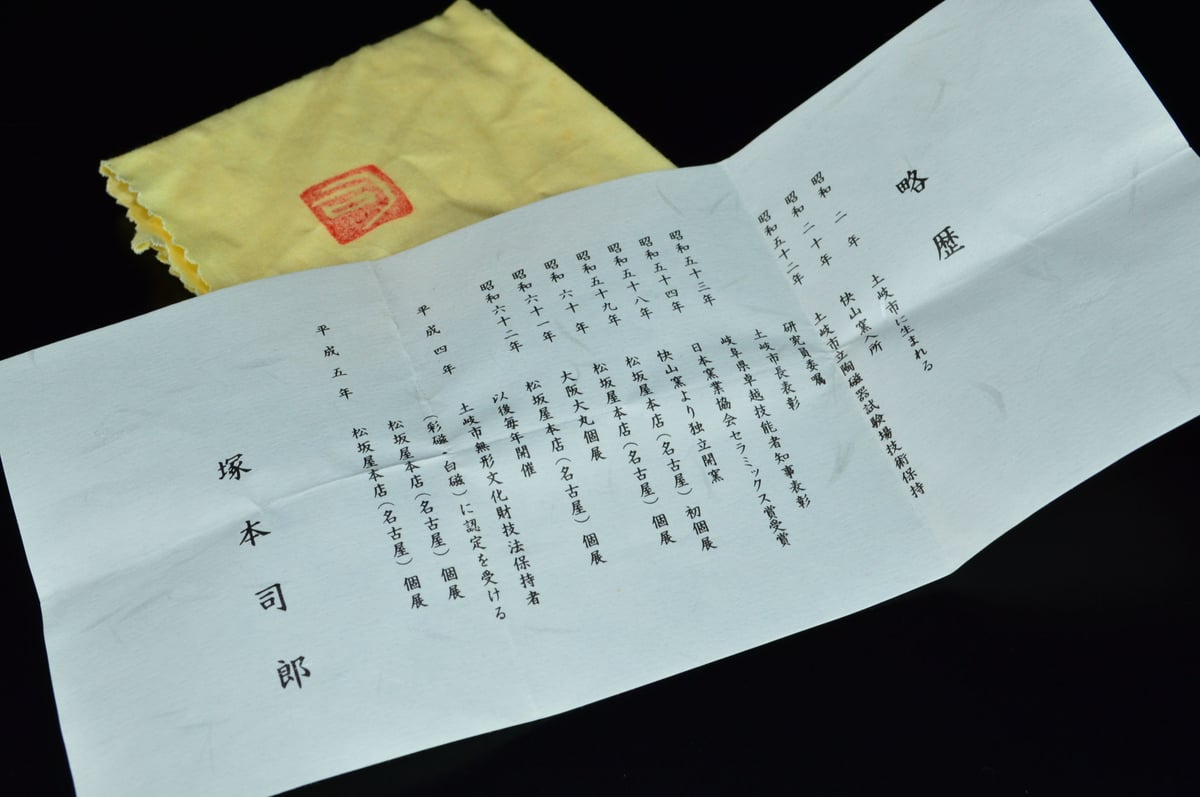 略歴
昭和二年 土岐市に生まれる
昭和二十年 快山窯入所
昭和五十二年 土岐市立陶磁器試験場技術保持
研究員委嘱
土岐市長表彰
昭和五十三年 岐阜県卓越技能者知事表彰
昭和五十四年 日本窯業協会セラミックス賞受賞
昭和五十八年 快山窯より独立開窯
昭和五十九年 松坂屋本店(名古屋)初個展
昭和六十年 松坂屋本店(名古屋)個展
昭和六十一年 大阪大丸個展
昭和六十二年 松坂屋本店(名古屋)個展
以後毎年開催
平成四年 土岐市無形文化財技法保持者
(彩磁・白磁)に認定を受ける
松坂屋本店(名古屋)個展
平成五年 松坂屋本店(名古屋)個展
塚本司郎
司